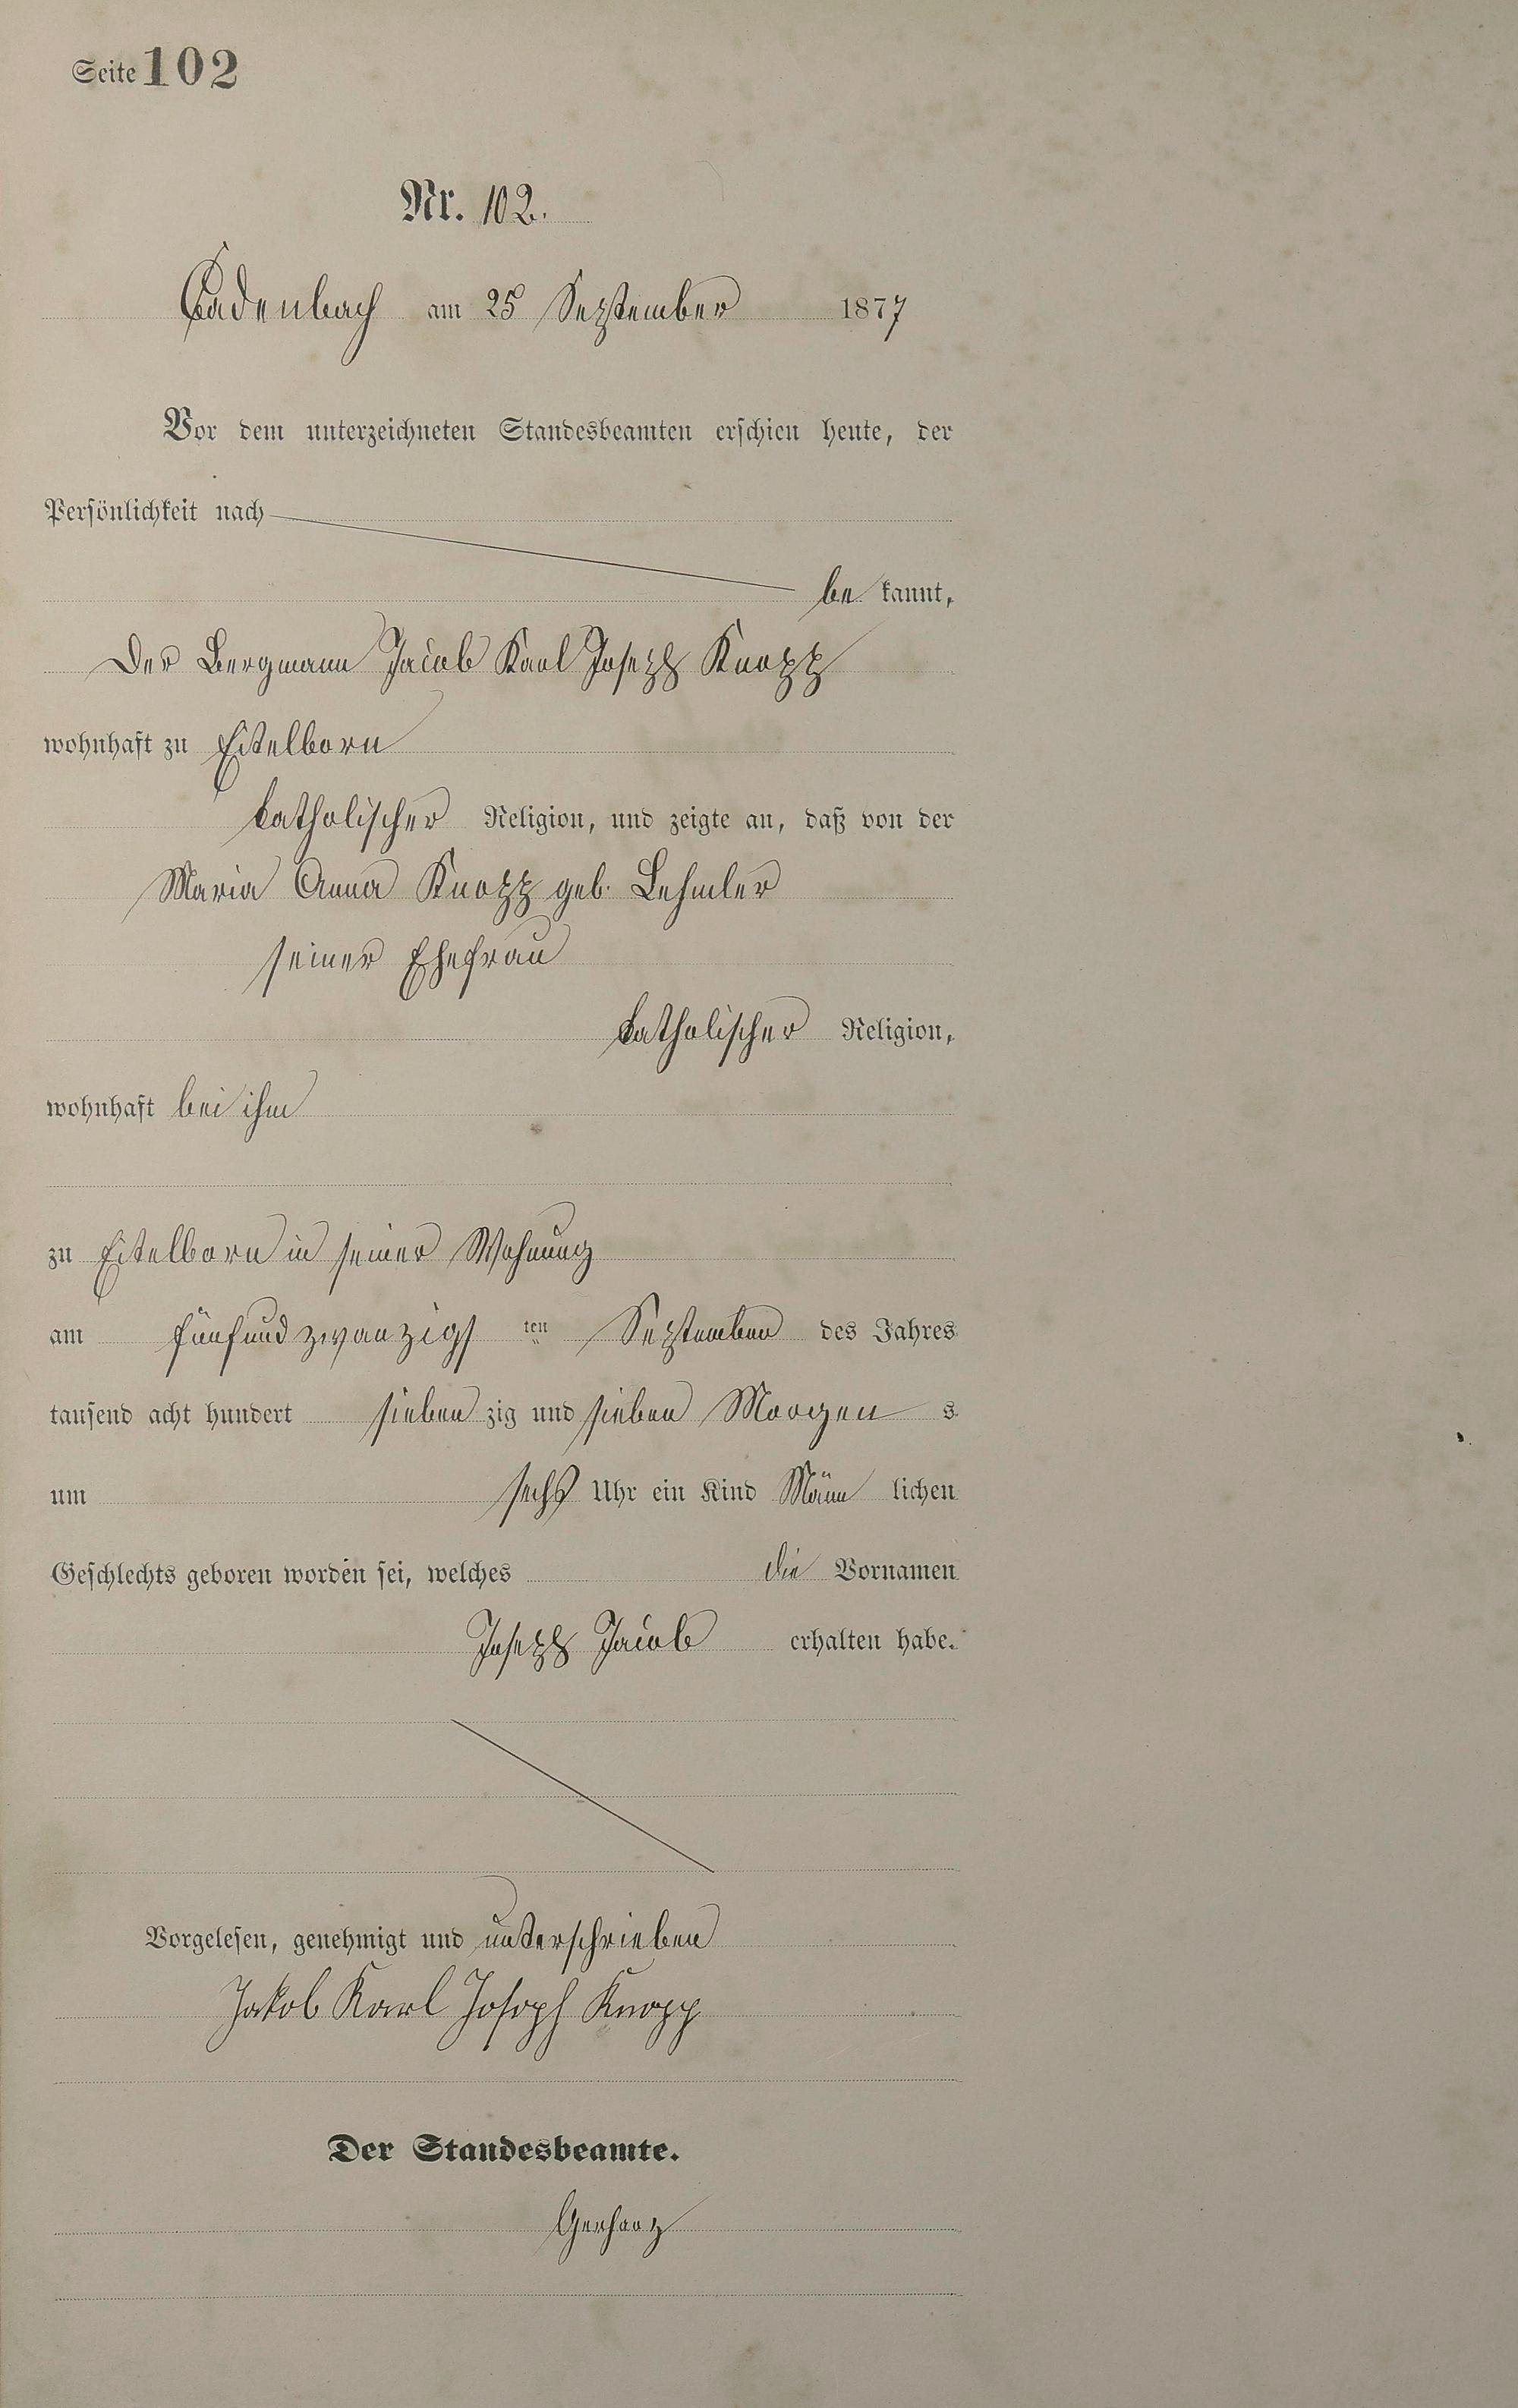 Seite 102
Nr. 102.
Cadenbach am 25 September 1877
Vor dem unterzeichneten Standesbeamten erschien heute, der
Persönlichkeit nach
be kannt,
Der Bergmann Jacob Karl Joseph Knopp
wohnhaft zu Eitelborn
katholischer Religion, und zeigte an, daß von der
Maria Anna Knopp geb. Lehmler
seiner Ehefrau
katholischer Religion,
wohnhaft bei ihm
zu Eitelborn in seiner Wohnung
am fünfund zwanzigs ten September des Jahres
tausend acht hundert sieben zig und sieben Morgen s
um sechs Uhr ein Kind Männ lichen
Geschlechts geboren worden sei, welches die Vornamen
Joseph Jacob erhalten habe.
Vorgelesen, genehmigt und unterschrieben
Jakob Karl Joseph Knopp
Der Standesbeamte.
Gerharz